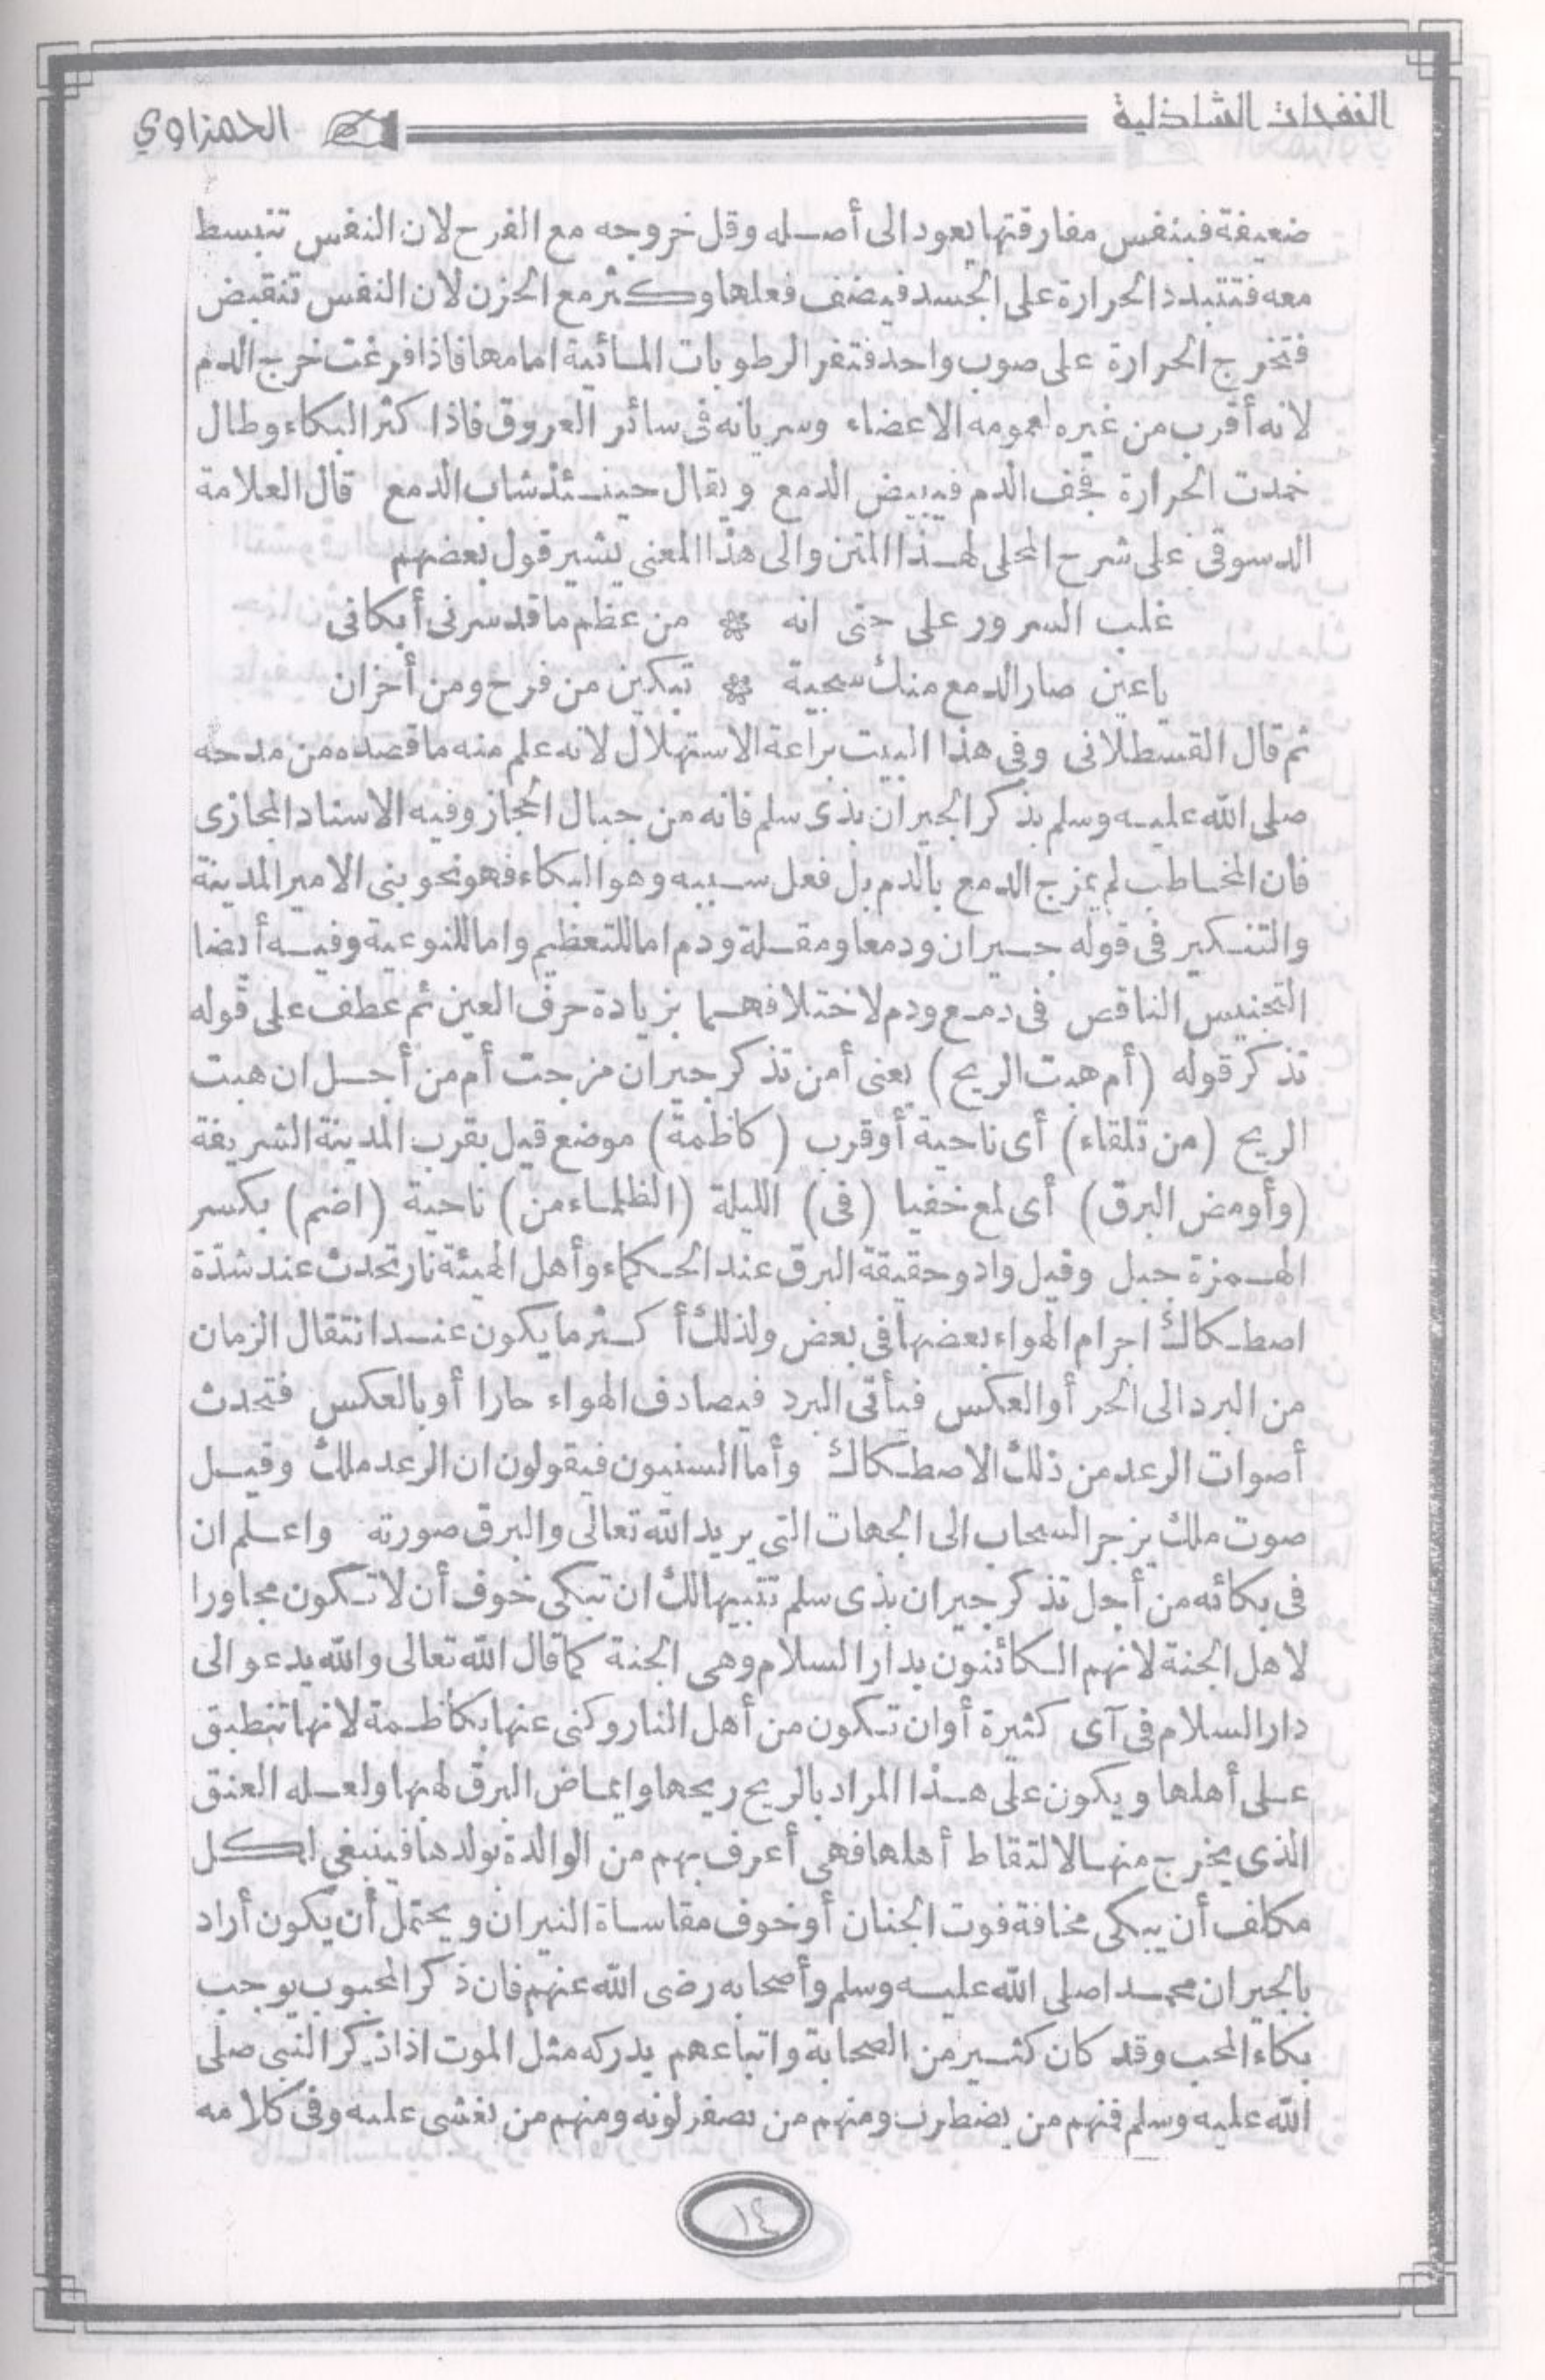 النفحات الشاذلية
الحمزاوي
ضعيفة فبنفس مفارقتها يعود الى أصله وقل خروجه مع الفرح لان النفس تنبسط
معه فتتبدد الحرارة على الجسد فيضف فعلها وكثر مع الحزن لان النفس تنقبض
فتخرج الحرارة على صوب واحد فتفر الرطوبات المائية امامها فاذا فرغت خرج الدم
لانه أقرب من غيره لعمومه الاعضاء وسريانه فى سائر العروق فاذا كثر البكاء وطال
خمدت الحرارة فجف الدم فيبيض الدمع ويقال حينئذ شاب الدمع قال العلامة
الدسوقى على شرح المحلى لهذا المتن والى هذا المعنى يشير قول بعضهم
غلب السرور على حتى انه ❋ من عظم ما قد سرنى أبكانى
ياعين صار الدمع منك سجية ❋ تبكين من فرح ومن أحزان
ثم قال القسطلانى وفى هذا البيت براعة الاستهلال لانه علم منه ما قصده من مدحه
صلى الله عليه وسلم بذكر الجيران بذى سلم فانه من جبال الحجاز وفيه الاسناد المجازى
فان المخاطب لم يمزج الدمع بالدم بل فعل سببه وهو البكاء فهو نحو بنى الامير المدينة
والتنكير فى قوله جيران ودمعا ومقلة ودم اما للتعظيم واما للنوعية وفيه أيضا
التجنيس الناقص فى دمع ودم لاختلافهما بزيادة حرف العين ثم عطف على قوله
تذكر قوله (أم هبت الريح) يعنى أمن تذكر جيران مزجت أم من أجل ان هبت
الريح (من تلقاء) أى ناحية أو قرب (كاظمة) موضع قيل بقرب المدينة الشريفة
(وأومض البرق) أى لمع خفيا (فى) الليلة (الظلماء من) ناحية (اضم) بكسر
الهمزة جبل وقيل واد وحقيقة البرق عند الحكماء وأهل الهيئة نار تحدث عند شدّة
اصطكاك اجرام الهواء بعضها فى بعض ولذلك أكثر ما يكون عند انتقال الزمان
من البرد الى الحر أو العكس فيأتى البرد فيصادف الهواء حارا أو بالعكس فتحدث
أصوات الرعد من ذلك الاصطكاك وأما السنيون فيقولون ان الرعد ملك وقيل
صوت ملك يزجر السحاب الى الجهات التى يريد الله تعالى والبرق صورته واعلم ان
فى بكائه من أجل تذكر جيران بذى سلم تنبيها لك ان تبكى خوف أن لا تكون مجاورا
لاهل الجنة لانهم الكائنون بدار السلام وهى الجنة كما قال الله تعالى والله يدعو الى
دار السلام فى آى كثيرة أو ان تكون من أهل النار وكنى عنها بكاظمة لانها تنطبق
على أهلها ويكون على هذا المراد بالريح ريحها وايماض البرق لهبها ولعله العنق
الذى يخرج منها لالتقاط أهلها فهى أعرف بهم من الوالدة بولدها فينبغى لكل
مكلف أن يبكى مخافة فوت الجنان أو خوف مقاساة النيران ويحتمل أن يكون أراد
بالجيران محمدا صلى الله عليه وسلم وأصحابه رضى الله عنهم فان ذكر المحبوب يوجب
بكاء المحب وقد كان كثير من الصحابة واتباعهم يدركه مثل الموت اذا ذكر النبى صلى
الله عليه وسلم فمنهم من يضطرب ومنهم من يصفر لونه ومنهم من يغشى عليه وفى كلامه
١٤